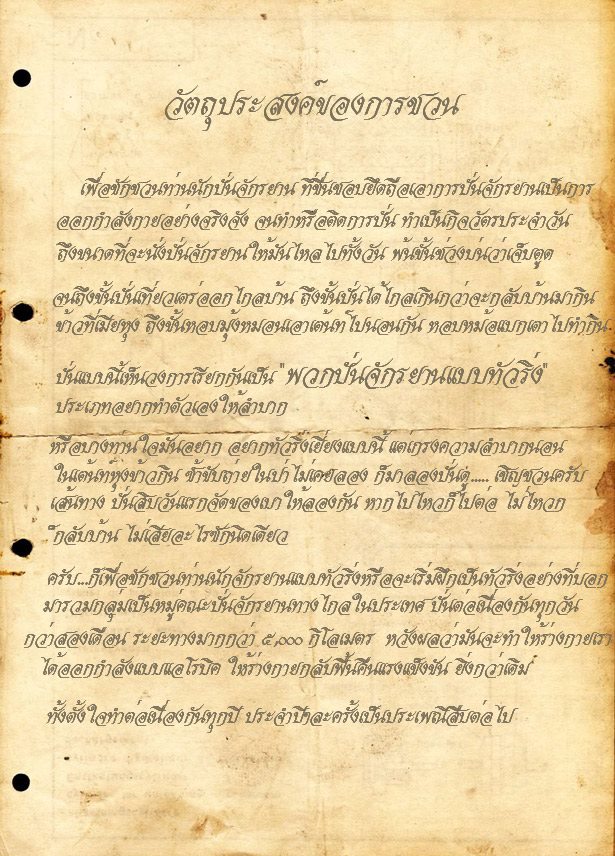 วัตถุประสงค์ของการชวน
เพื่อชักชวนท่านนักปั่นจักรยาน ที่ชื่นชอบยึดถือเอาการปั่นจักรยานเป็นการ
ออกกำลังกายอย่างจริงจัง จนทำหรือติดการปั่น ทำเป็นกิจวัตรประจำวัน
ถึงขนาดที่จะนั่งปั่นจักรยานให้มันไหลไปทั้งวัน พ้นชั้นช่วงบ่นว่าเจ็บตูด
จนถึงชั้นปั่นเที่ยวเตร่ออกไกลบ้าน ถึงชั้นปั่นได้ไกลเกินกว่าจะกลับบ้านมากิน
ข้าวที่เมียหุง ถึงชั้นหอบมุ้งหมอนเอาเต้นท์ไปนอนกัน หอบหม้อแบกเตาไปทำกิน
ปั่นแบบนี้เห็นวงการเรียกกันเป็น "พวกปั่นจักรยานแบบทัวริ่ง"
ประเภทอยากทำตัวเองให้ลำบาก
หรือบางท่านใจมันอยาก อยากทัวริ่งเยี่ยงแบบนี้ แต่เกรงความลำบากนอน
ในเต้นท์หุงข้าวกิน ขี้ขับถ่ายในป่าไม่เคยลอง ก็มาลองปั่นดู..... เชิญชวนครับ
เส้นทาง ปั่นสิบวันแรกจัดของเบาให้ลองกัน หากไปไหวก็ไปต่อ ไม่ไหวก
็กลับบ้าน ไม่เสียอะไรซักนิดเดียว
ครับ...ก็เพื่อชักชวนท่านนักจักรยานแบบทัวริ่งหรือจะเริ่มฝึกเป็นทัวริ่งอย่างที่บอก
มารวมกลุ่มเป็นหมู่คณะปั่นจักรยานทางไกลในประเทศ ปั่นต่อเนื่องกันทุกวัน
กว่าสองเดือน ระยะทางมากกว่า ๕,๐๐๐ กิโลเมตร หวังผลว่ามันจะทำให้ร่างกายเรา
ได้ออกกำลังแบบแอโรบิค ให้ร่างกายกลับฟื้นคืนแรงแข็งขัน ยิ่งกว่าเดิม
ทั้งตั้งใจทำต่อเนื่องกันทุกปี ประจำปีละครั้งเป็นประเพณีสืบต่อไป